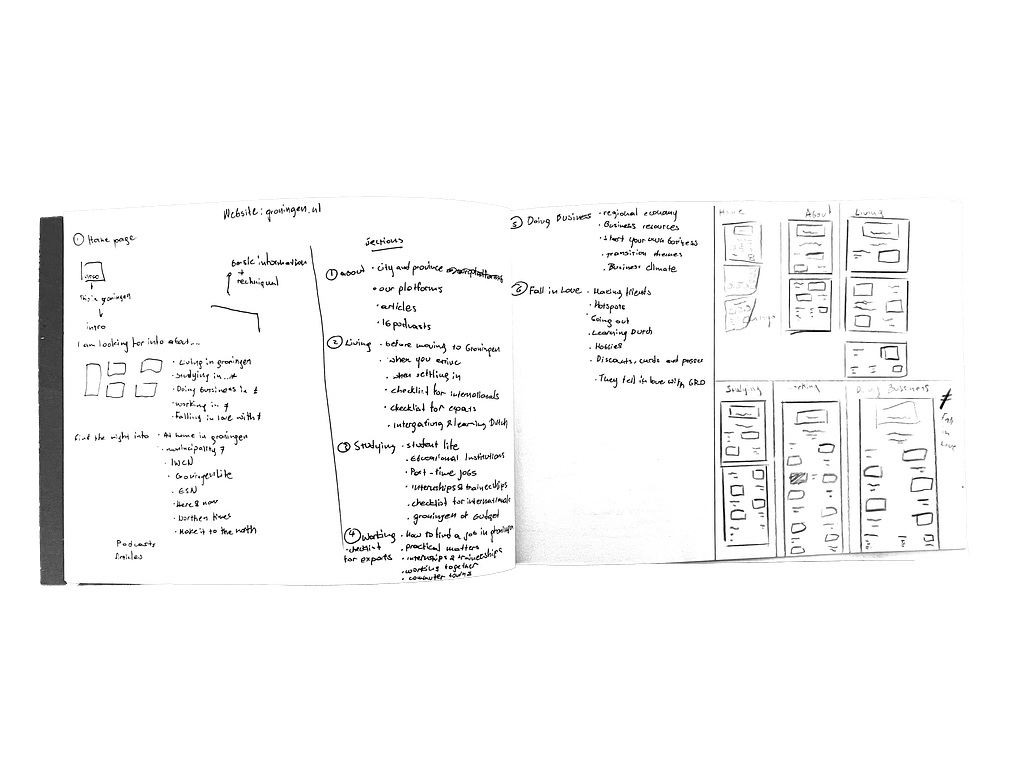 Website: groningen.nl
① Home page
intro
I am looking for info about...
· Living in groningen
· Studying in
· Doing Bussiness in
· working in
· Falling in love with
Find the right info
· At home in groningen
· municipality
· IWCN
· Groningenlife
· ESN
· Here & now
· Northen times
· Make it to the north
Podcasts
Articles
basic information
+
Sections
① about
· city and province
· our platforms
· articles
· 16 podcasts
② Living
· before moving to Groningen
· when you arrive
· when settling in
· checklist for internationals
· checklist for expats
· intergrating & learning Dutch
③ Studying
· student life
· Educational Institutions
· Part-time jobs
· internships & traineeships
· checklist for internationals
· groningen at budget
④ Working
· checklist
for expats
· How to find a job in groningen
· practical matters
· internships & traineeships
· working together
· commuter towns
⑤ Doing Business
· regional economy
· Business resources
· start your own business
· transition themes
· Business climate
⑥ Fall in Love
· Making friends
· Hotspots
· Going out
· Learning Dutch
· Hobbies
· Discounts, cards and passes
· They fell in love with GRO
Home
About
Living
Studying
Doing Bussiness
in
Love